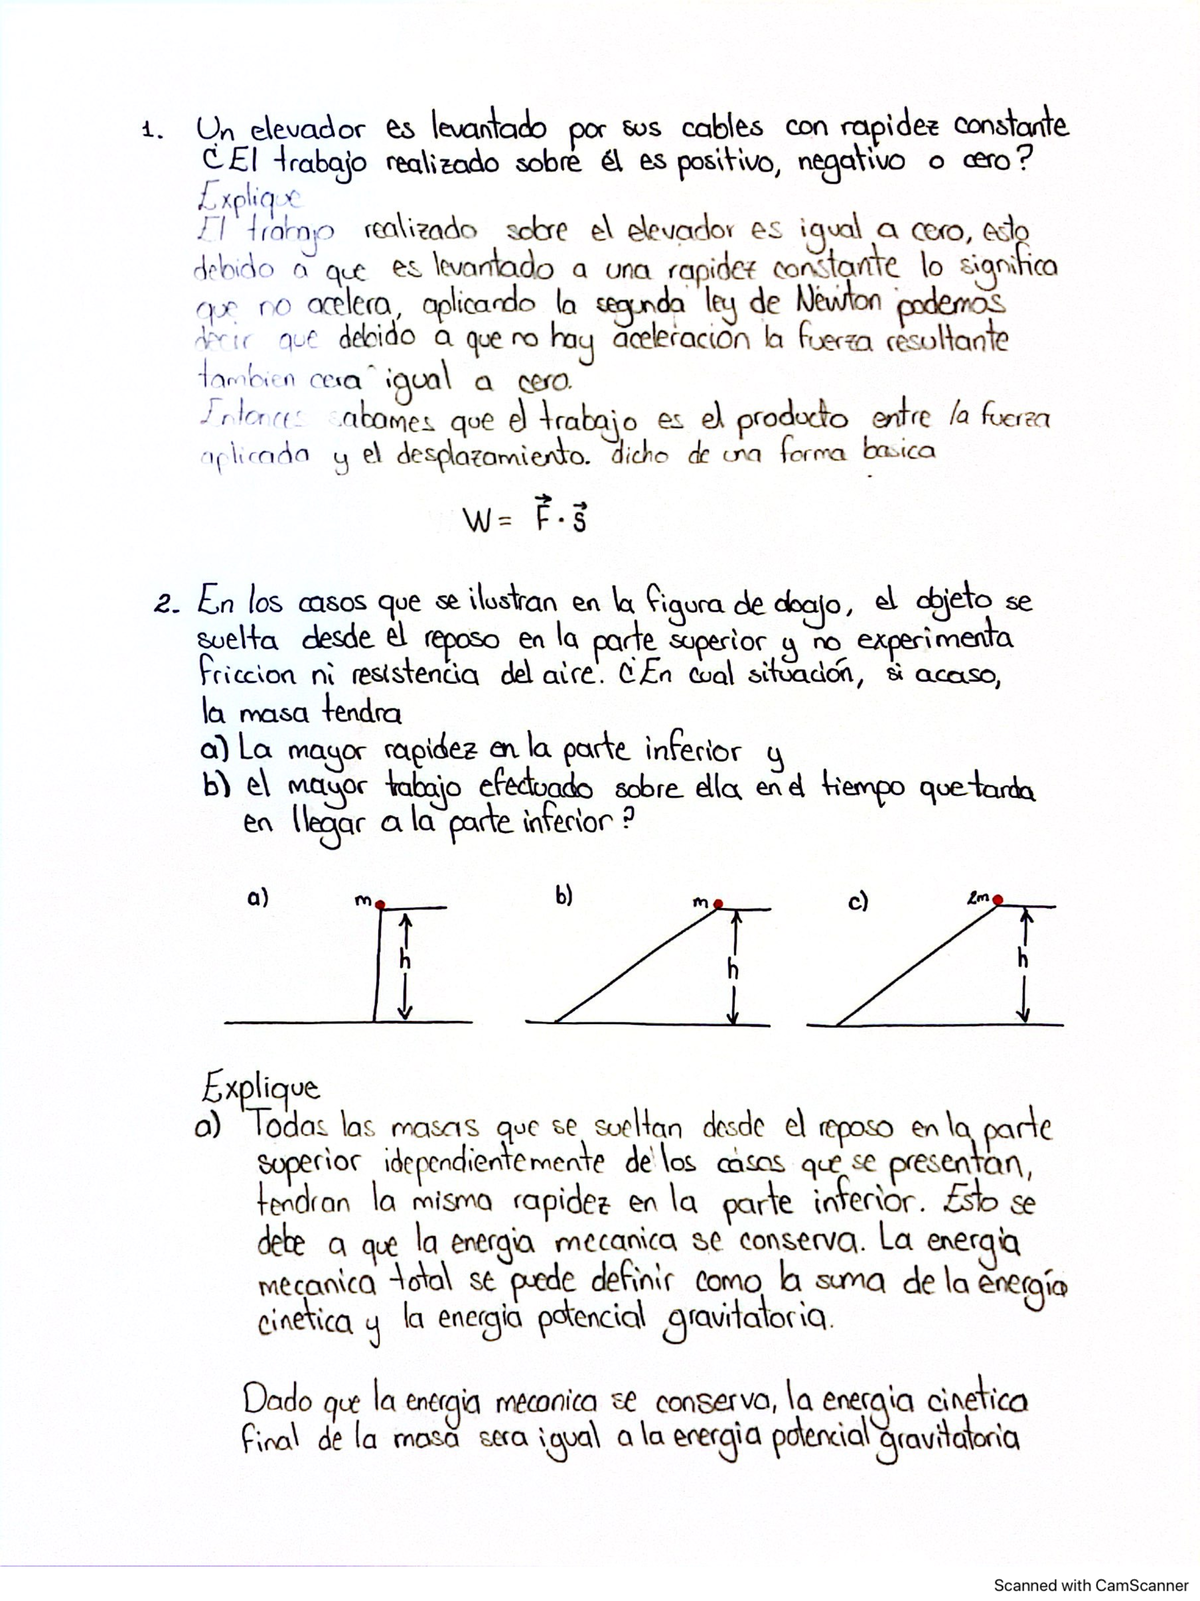 1. Un elevador es levantado por sus cables con rapidez constante
¿El trabajo realizado sobre él es positivo, negativo o cero?
Explique
El trabajo realizado sobre el elevador es igual a cero, esto
debido a que es levantado a una rapidez constante lo significa
que no acelera, aplicando la segunda ley de Newton podemos
decir que debido a que no hay aceleración la fuerza resultante
tambien cera igual a cero.
Entonces sabames que el trabajo es el producto entre la fuerza
aplicada y el desplazamiento. dicho de una forma basica
W = F⃗ · s⃗
2. En los casos que se ilustran en la figura de abajo, el objeto se
suelta desde el reposo en la parte superior y no experimenta
friccion ni resistencia del aire. ¿En cual situación, si acaso,
la masa tendra
a) La mayor rapidez en la parte inferior y
b) el mayor trabajo efectuado sobre ella en el tiempo que tarda
en llegar a la parte inferior?
a) m h
b) m h
c) 2m h
Explique
a) Todas las masas que se sueltan desde el reposo en la parte
superior idependientemente de los casos que se presentan,
tendran la misma rapidez en la parte inferior. Esto se
debe a que la energia mecanica se conserva. La energia
mecanica total se puede definir como la suma de la energía
cinetica y la energia potencial gravitatoria.
Dado que la energia mecanica se conserva, la energia cinetica
final de la masa sera igual a la energia potencial gravitatoria
Scanned with CamScanner